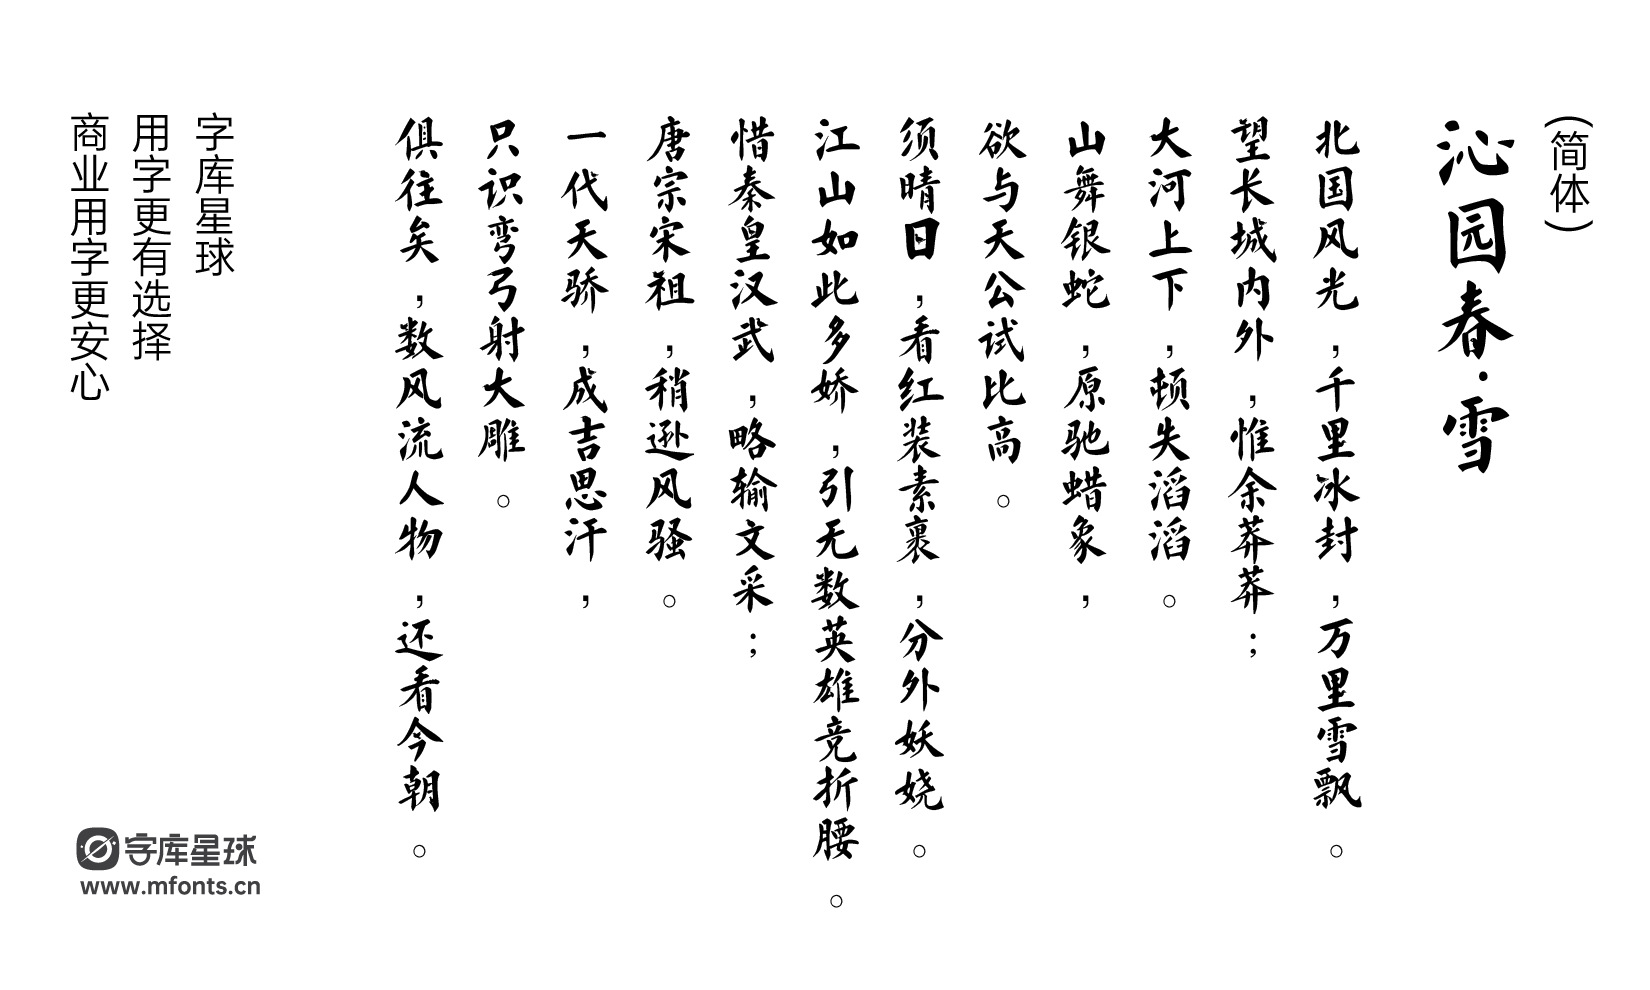 （简体）
沁园春·雪
北国风光，千里冰封，万里雪飘。
望长城内外，惟余莽莽；
大河上下，顿失滔滔。
山舞银蛇，原驰蜡象，
欲与天公试比高。
须晴日，看红装素裹，分外妖娆。
江山如此多娇，引无数英雄竞折腰。
惜秦皇汉武，略输文采；
唐宗宋祖，稍逊风骚。
一代天骄，成吉思汗，
只识弯弓射大雕。
俱往矣，数风流人物，还看今朝。
字库星球
用字更有选择
商业用字更安心
字库星球
www.mfonts.cn